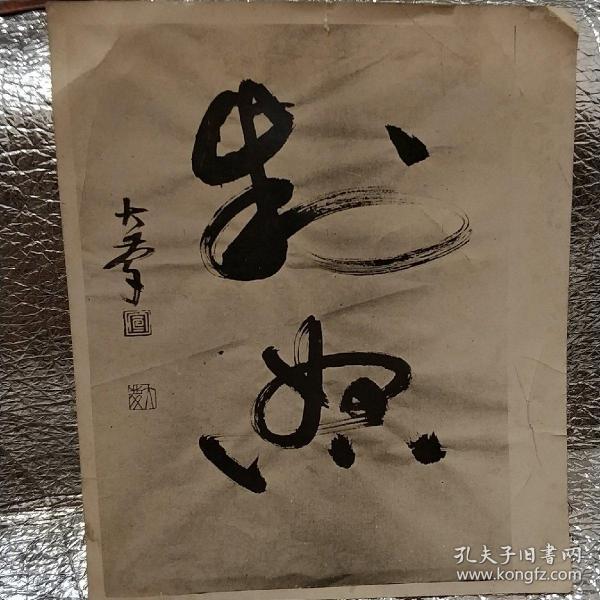 制怒
大康
孔夫子旧书网
www.kongfz.com